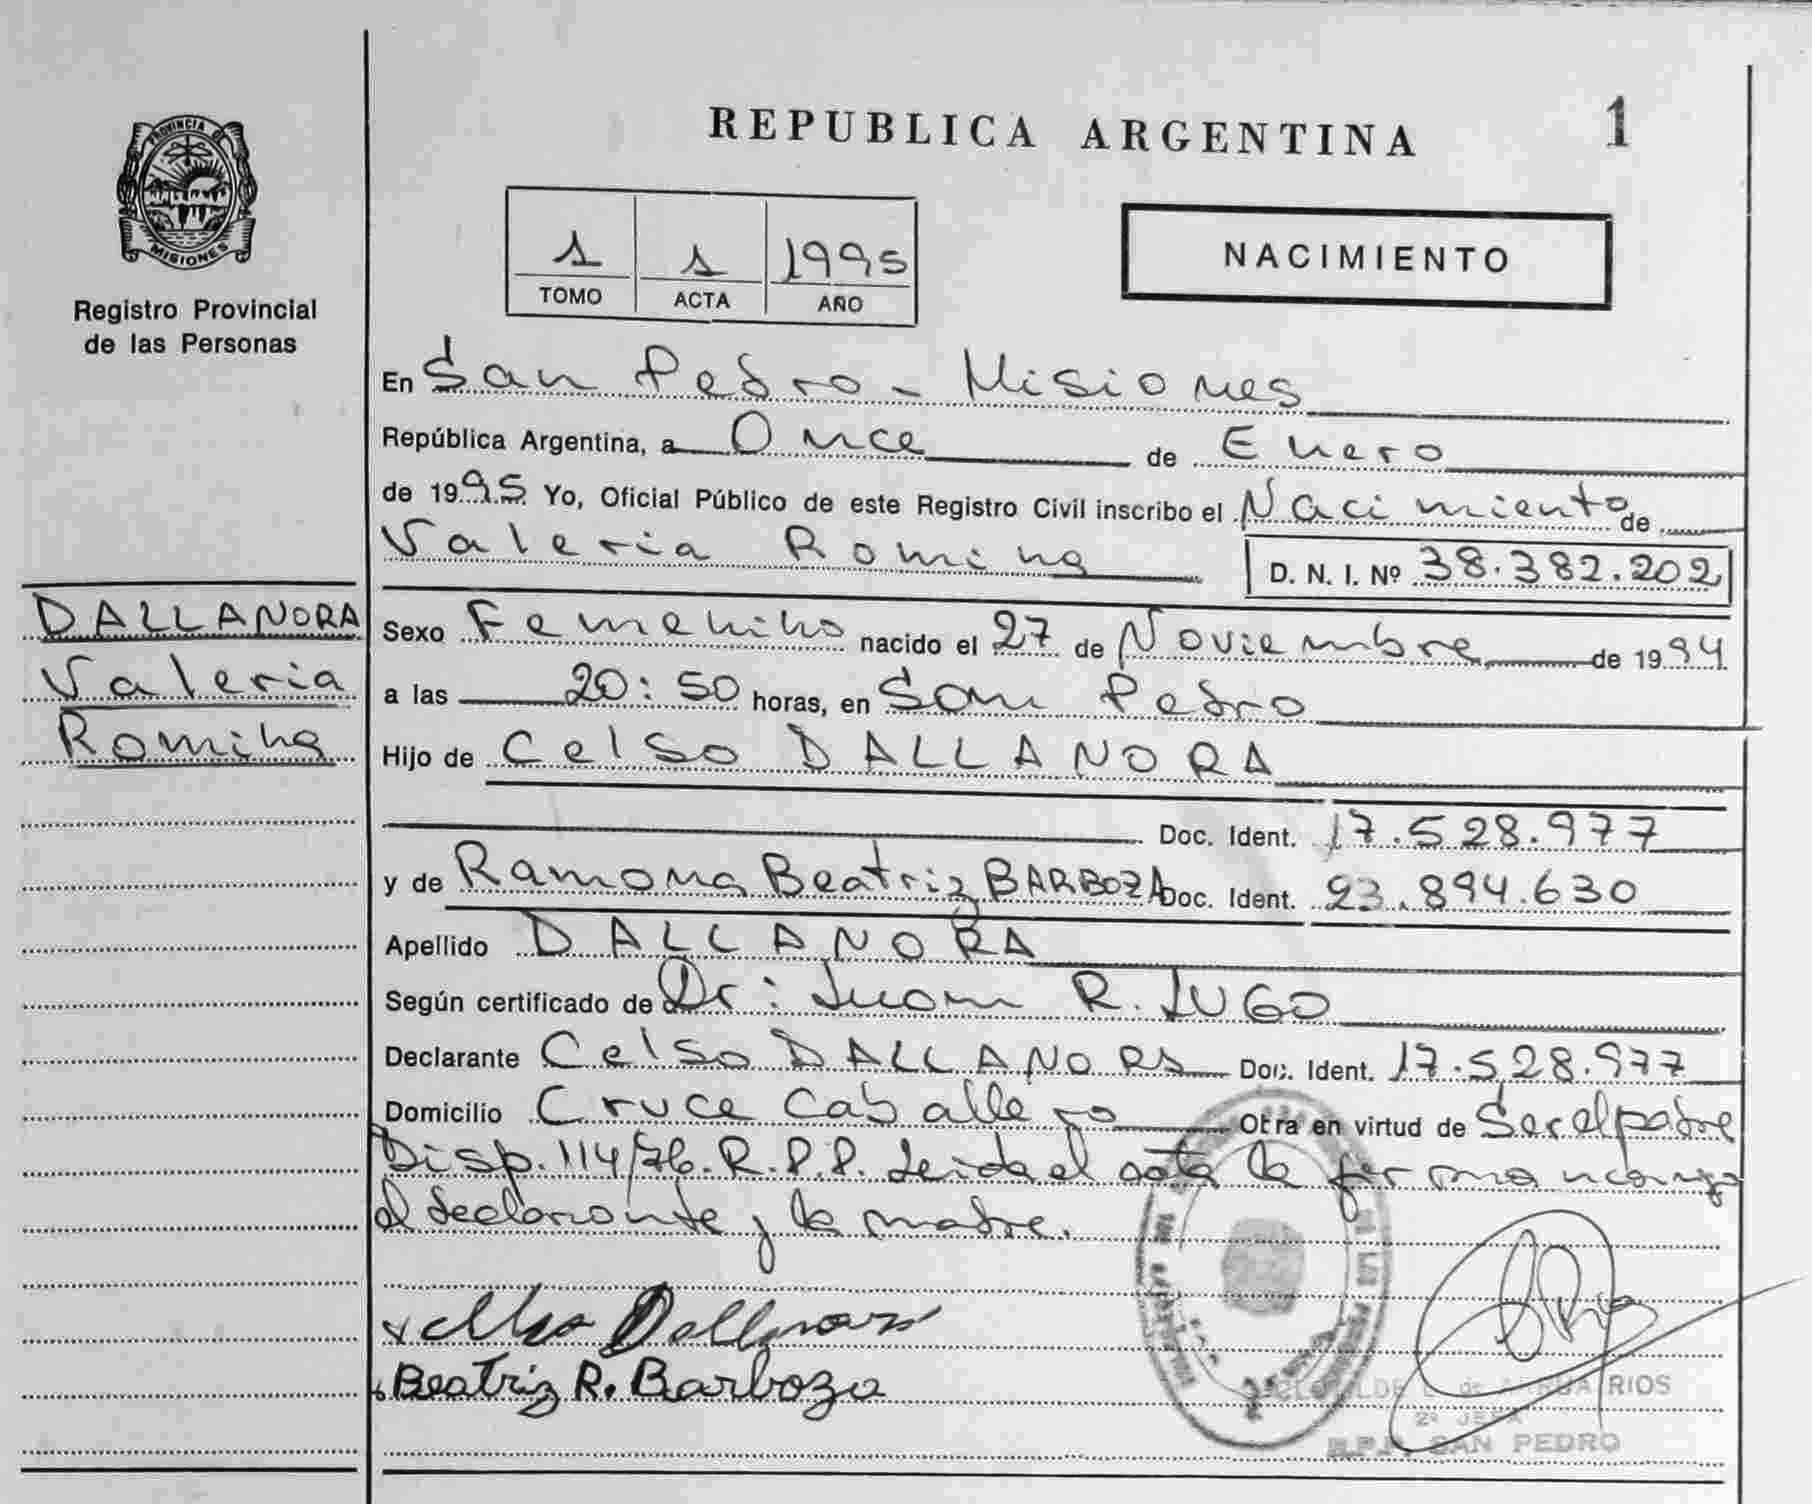 PROVINCIA DE
MISIONES
Registro Provincial
de las Personas
DALLANORA
Valeria
Romina
REPUBLICA ARGENTINA
1
1 1 1995
TOMO ACTA AÑO
NACIMIENTO
En San Pedro - Misiones
República Argentina, a Once de Enero
de 1995 Yo, Oficial Público de este Registro Civil inscribo el Nacimiento de
Valeria Romina D. N. I. Nº 38.382.202
Sexo Femenino nacido el 27 de Noviembre de 1994
a las 20:50 horas, en San Pedro
Hijo de Celso DALLANORA
Doc. Ident. 17.528.977
y de Ramona Beatriz BARBOZA Doc. Ident. 23.894.630
Apellido DALLANORA
Según certificado de Dr: Juan R. LUGO
Declarante Celso DALLANORA Doc. Ident. 17.528.977
Domicilio Cruce Caballero Otra en virtud de Ser el padre
Disp. 114/76. R.P.P. Leida el acta la firman conmigo
el declarante y la madre.
Beatriz R. Barboza
RIOS
2º JEFA
R.P.P. SAN PEDRO